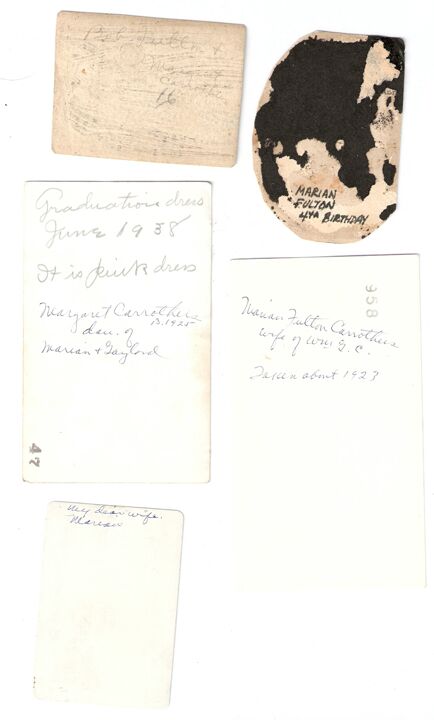 Bob Fulton &
Margaret
MARIAN
FULTON
4TH BIRTHDAY
Graduation dress
June 1938
It is pink dress
Margaret Carrothers
B. 1925
dau. of
Marian & Gaylord
47
958
Marian Fulton Carrothers
wife of Wm. G. C.
Taken about 1923
My dear wife.
Marian